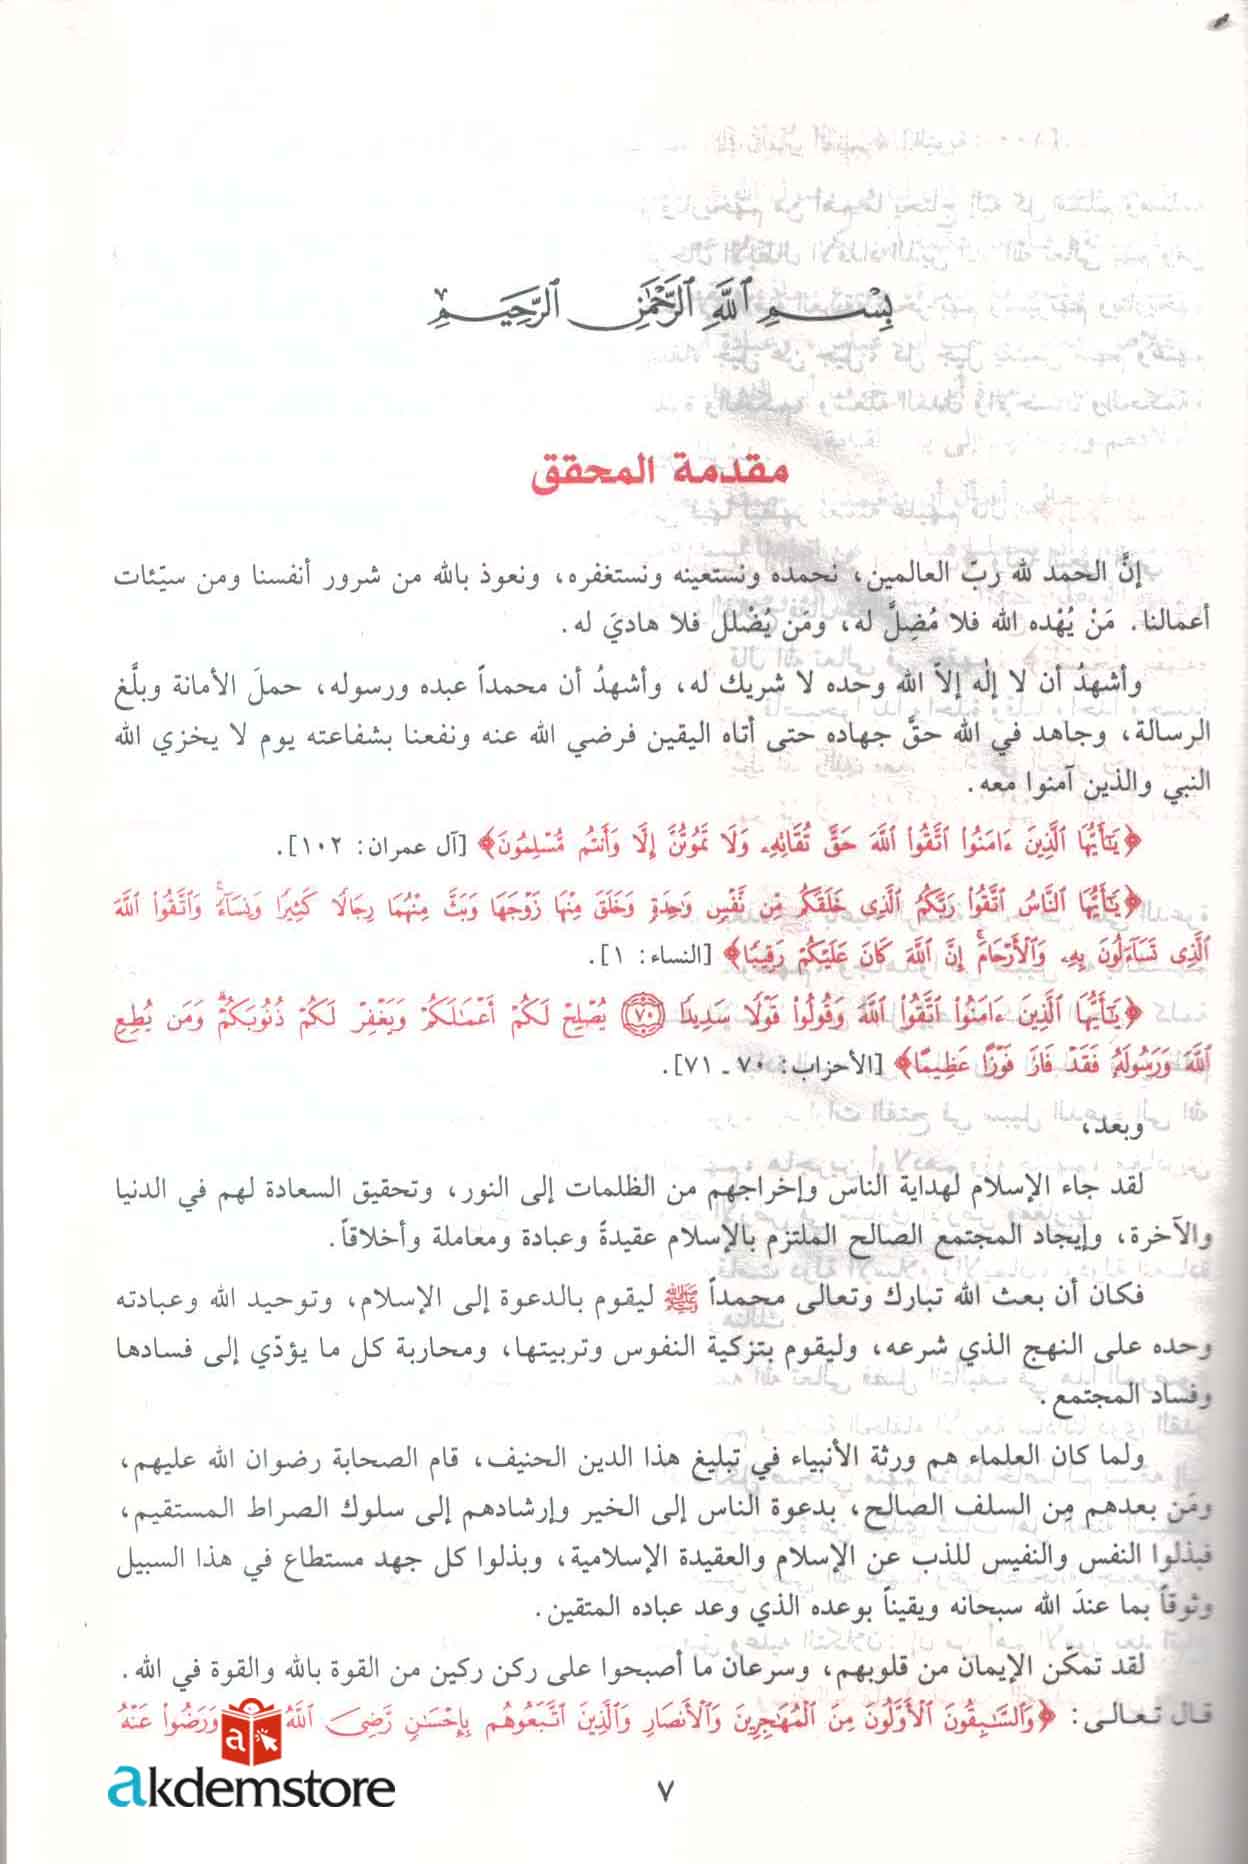 بِسْمِ ٱللَّهِ ٱلرَّحْمَٰنِ ٱلرَّحِيمِ
مقدمة المحقق
إنَّ الحمد لله ربّ العالمين، نحمده ونستعينه ونستغفره، ونعوذ بالله من شرور أنفسنا ومن سيّئات
أعمالنا. مَنْ يُهْده الله فلا مُضِلَّ له، ومَن يُضْلل فلا هاديَ له.
وأشهدُ أن لا إلٰه إلاَّ الله وحده لا شريك له، وأشهدُ أن محمداً عبده ورسوله، حملَ الأمانة وبلَّغ
الرسالة، وجاهد في الله حقَّ جهاده حتى أتاه اليقين فرضي الله عنه ونفعنا بشفاعته يوم لا يخزي الله
النبي والذين آمنوا معه.
﴿يَٰٓأَيُّهَا ٱلَّذِينَ ءَامَنُوا۟ ٱتَّقُوا۟ ٱللَّهَ حَقَّ تُقَاتِهِۦ وَلَا تَمُوتُنَّ إِلَّا وَأَنتُم مُّسْلِمُونَ﴾ [آل عمران: ١٠٢].
﴿يَٰٓأَيُّهَا ٱلنَّاسُ ٱتَّقُوا۟ رَبَّكُمُ ٱلَّذِى خَلَقَكُم مِّن نَّفْسٍ وَٰحِدَةٍ وَخَلَقَ مِنْهَا زَوْجَهَا وَبَثَّ مِنْهُمَا رِجَالًا كَثِيرًا وَنِسَآءً ۚ وَٱتَّقُوا۟ ٱللَّهَ
ٱلَّذِى تَسَآءَلُونَ بِهِۦ وَٱلْأَرْحَامَ ۚ إِنَّ ٱللَّهَ كَانَ عَلَيْكُمْ رَقِيبًا﴾ [النساء: ١].
﴿يَٰٓأَيُّهَا ٱلَّذِينَ ءَامَنُوا۟ ٱتَّقُوا۟ ٱللَّهَ وَقُولُوا۟ قَوْلًا سَدِيدًا ٧٠ يُصْلِحْ لَكُمْ أَعْمَٰلَكُمْ وَيَغْفِرْ لَكُمْ ذُنُوبَكُمْ ۗ وَمَن يُطِعِ
ٱللَّهَ وَرَسُولَهُۥ فَقَدْ فَازَ فَوْزًا عَظِيمًا﴾ [الأحزاب: ٧٠ ـ ٧١].
وبعد،
لقد جاء الإسلام لهداية الناس وإخراجهم من الظلمات إلى النور، وتحقيق السعادة لهم في الدنيا
والآخرة، وإيجاد المجتمع الصالح الملتزم بالإسلام عقيدةً وعبادة ومعاملة وأخلاقاً.
فكان أن بعث الله تبارك وتعالى محمداً ﷺ ليقوم بالدعوة إلى الإسلام، وتوحيد الله وعبادته
وحده على النهج الذي شرعه، وليقوم بتزكية النفوس وتربيتها، ومحاربة كل ما يؤدّي إلى فسادها
وفساد المجتمع.
ولما كان العلماء هم ورثة الأنبياء في تبليغ هذا الدين الحنيف، قام الصحابة رضوان الله عليهم،
ومَن بعدهم مِن السلف الصالح، بدعوة الناس إلى الخير وإرشادهم إلى سلوك الصراط المستقيم،
فبذلوا النفس والنفيس للذب عن الإسلام والعقيدة الإسلامية، وبذلوا كل جهد مستطاع في هذا السبيل
وثوقاً بما عندَ الله سبحانه ويقيناً بوعده الذي وعد عباده المتقين.
لقد تمكّن الإيمان من قلوبهم، وسرعان ما أصبحوا على ركن ركين من القوة بالله والقوة في الله.
قال تعالى: ﴿وَٱلسَّٰبِقُونَ ٱلْأَوَّلُونَ مِنَ ٱلْمُهَٰجِرِينَ وَٱلْأَنصَارِ وَٱلَّذِينَ ٱتَّبَعُوهُم بِإِحْسَٰنٍ رَّضِىَ ٱللَّهُ وَرَضُوا۟ عَنْهُ
a
akdemstore
٧